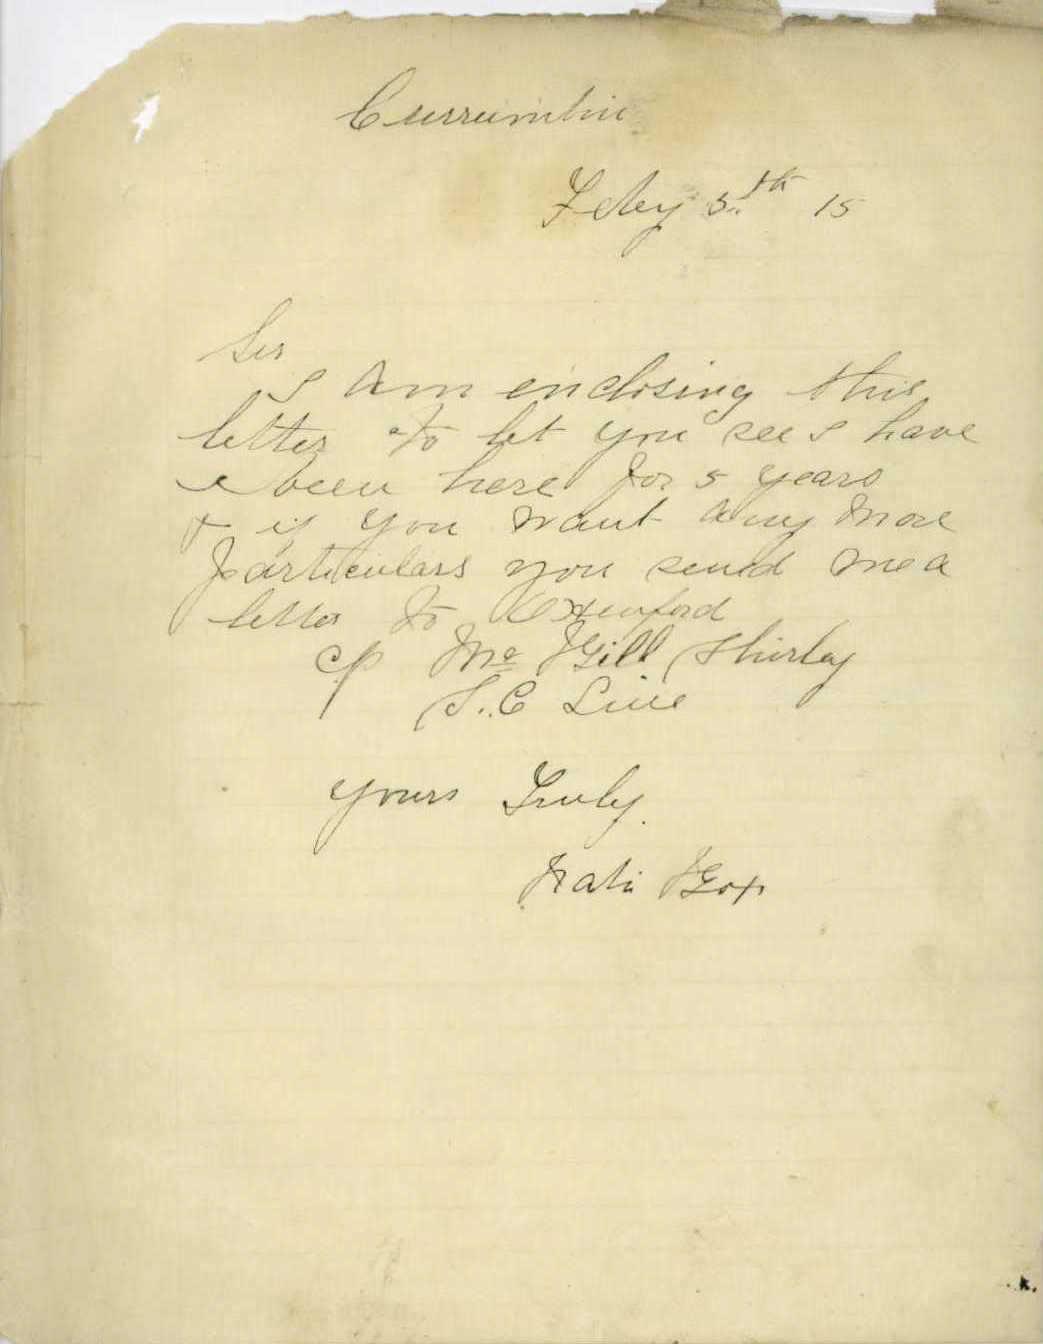 Currumbin
Feby 5th 15
Sir
I Am enclosing this
letter to let you see I have
been here for 5 years
& if you want Any More
particulars you send me a
letter to Oxenford
c/o Mc Gill Shirley
S.C Line
yours Truly.